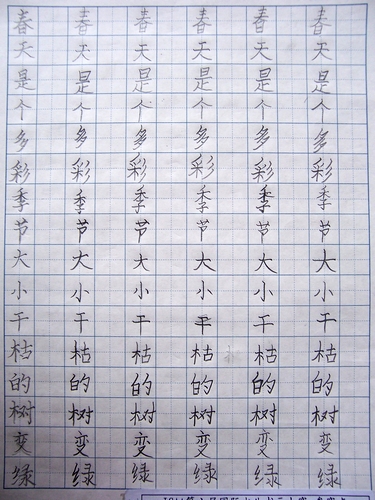 春 春 春 春 春 春
天 天 天 天 天 天
是 是 是 是 是 是
个 个 个 个 个 个
多 多 多 多 多 多
彩 彩 彩 彩 彩 彩
季 季 季 季 季 季
节 节 节 节 节 节
大 大 大 大 大 大
小 小 小 小 小 小
干 干 干 干 干 干
枯 枯 枯 枯 枯 枯
的 的 的 的 的 的
树 树 树 树 树 树
变 变 变 变 变 变
绿 绿 绿 绿 绿 绿